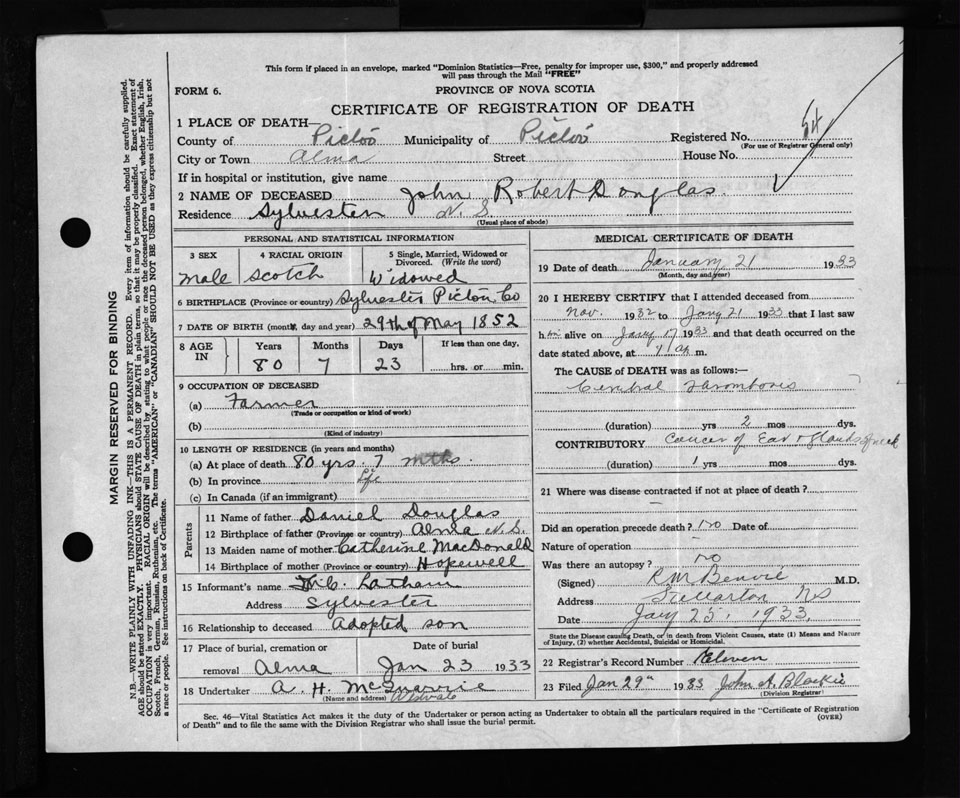 This form if placed in an envelope, marked "Dominion Statistics—Free, penalty for improper use, $300," and properly addressed
will pass through the Mail "FREE"
FORM 6.
PROVINCE OF NOVA SCOTIA
CERTIFICATE OF REGISTRATION OF DEATH
1 PLACE OF DEATH—
County of Pictou Municipality of Pictou Registered No. 54
(For use of Registrar General only)
City or Town Alma Street House No.
If in hospital or institution, give name
2 NAME OF DECEASED John Robert Douglas
Residence Sylvester N. S.
(Usual place of abode)
PERSONAL AND STATISTICAL INFORMATION
3 SEX 4 RACIAL ORIGIN 5 Single, Married, Widowed or
Divorced. (Write the word)
Male Scotch Widowed
6 BIRTHPLACE (Province or country) Sylvester Pictou Co
7 DATE OF BIRTH (month, day and year) 29th of May 1852
8 AGE IN Years Months Days If less than one day.
80 7 23 hrs. or min.
9 OCCUPATION OF DECEASED
(a) Farmer
(Trade or occupation or kind of work)
(b)
(Kind of industry)
10 LENGTH OF RESIDENCE (in years and months)
(a) At place of death 80 yrs. 7 mths.
(b) In province life
(c) In Canada (if an immigrant)
Parents
11 Name of father Daniel Douglas
12 Birthplace of father (Province or country) Alma N. S.
13 Maiden name of mother Catherine MacDonald
14 Birthplace of mother (Province or country) Hopewell
15 Informant's name Latham
Address Sylvester
16 Relationship to deceased Adopted son
17 Place of burial, cremation or Date of burial
removal Alma Jan 23 1933
18 Undertaker A. H. McQuarrie
(Name and address)
MEDICAL CERTIFICATE OF DEATH
19 Date of death January 21 1933
(Month, day and year)
20 I HEREBY CERTIFY that I attended deceased from
Nov. 1932 to Jany 21 1933 that I last saw
him alive on Jany 17 1933 and that death occurred on the
date stated above, at m.
The CAUSE of DEATH was as follows:—
(duration) yrs 2 mos dys.
CONTRIBUTORY Cancer of Ear & glands of neck
(duration) 1 yrs mos dys.
21 Where was disease contracted if not at place of death?
Did an operation precede death? no Date of
Nature of operation
Was there an autopsy? no
(Signed) R M Benvie M.D.
Address Stellarton NS
Date Jany 25, 1933.
State the Disease causing Death, or in death from Violent Causes, state (1) Means and Nature
of Injury, (2) whether Accidental, Suicidal or Homicidal.
22 Registrar's Record Number Eleven
23 Filed Jan 29th 1933 John A. Blaikie
(Division Registrar)
Sec. 46—Vital Statistics Act makes it the duty of the Undertaker or person acting as Undertaker to obtain all the particulars required in the "Certificate of Registration
of Death" and to file the same with the Division Registrar who shall issue the burial permit.
(OVER)
MARGIN RESERVED FOR BINDING
N.B. WRITE PLAINLY WITH UNFADING INK—THIS IS A PERMANENT RECORD. Every item of information should be carefully supplied.
AGE should be stated EXACTLY. PHYSICIANS should STATE CAUSE OF DEATH in plain terms, so that it may be properly classified. Exact statement of
OCCUPATION is very important. RACIAL ORIGIN will be described by stating to what people or race the deceased person belonged, whether English, Irish,
Scotch, French, German, Russian, Ruthenian, etc. The terms "AMERICAN" or "CANADIAN" SHOULD NOT BE USED as they express citizenship but not
a race or people. See instructions on back of Certificate.